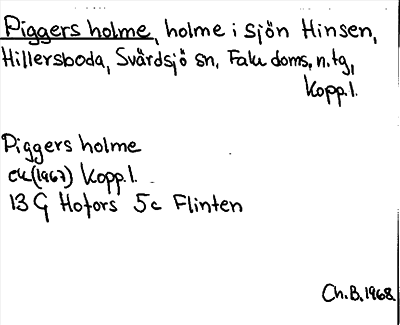 Piggers holme, holme i sjön Hinsen,
Hillersboda, Svärdsjö sn, Falu doms. n. tg,
Kopp. l.
Piggers holme
ek (1967) Kopp. l.
13 G Hofors 5c Flinten
Ch. B. 1968.